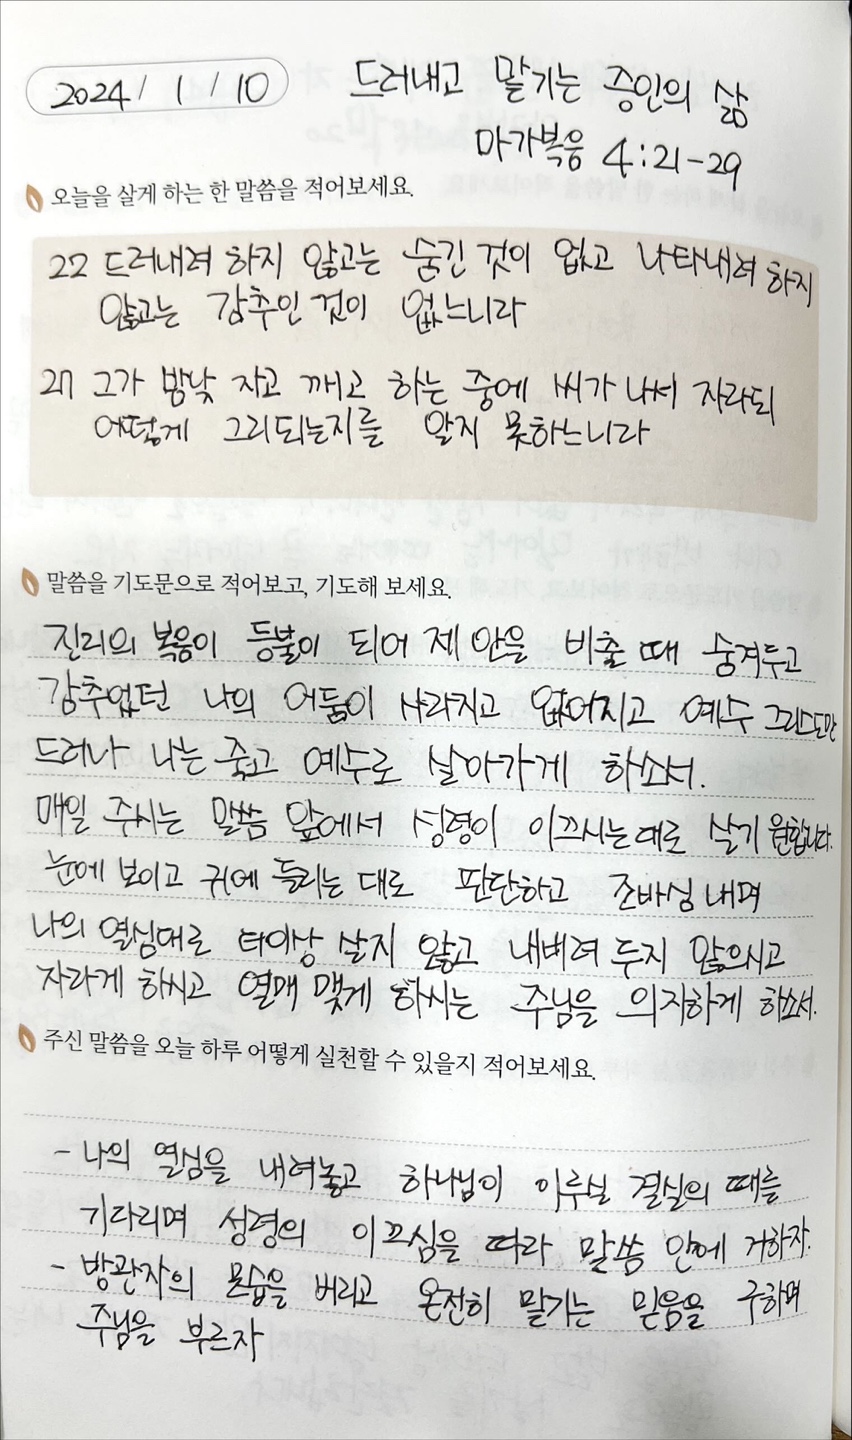 2024/ 1 / 10
드러내고 맡기는 증인의 삶
마가복음 4:21-29
오늘을 살게 하는 한 말씀을 적어보세요.
22 드러내려 하지 않고는 숨긴 것이 없고 나타내려 하지
않고는 감추인 것이 없느니라
27 그가 밤낮 자고 깨고 하는 중에 씨가 나서 자라되
어떻게 그리되는지를 알지 못하느니라
말씀을 기도문으로 적어보고, 기도해 보세요.
진리의 복음이 등불이 되어 제 안을 비출 때 숨겨두고
감추었던 나의 어둠이 사라지고 없어지고 예수 그리스도만
드러나 나는 죽고 예수로 살아가게 하소서.
매일 주시는 말씀 앞에서 성령이 이끄시는대로 살기 원합니다.
눈에 보이고 귀에 들리는 대로 판단하고 조바심 내며
나의 열심대로 더이상 살지 않고 내버려 두지 않으시고
자라게 하시고 열매 맺게 하시는 주님을 의지하게 하소서.
주신 말씀을 오늘 하루 어떻게 실천할 수 있을지 적어보세요.
- 나의 열심을 내려놓고 하나님이 이루실 결실의 때를
기다리며 성령의 이끄심을 따라 말씀 안에 거하자.
- 방관자의 모습을 버리고 온전히 맡기는 믿음을 구하며
주님을 부르자